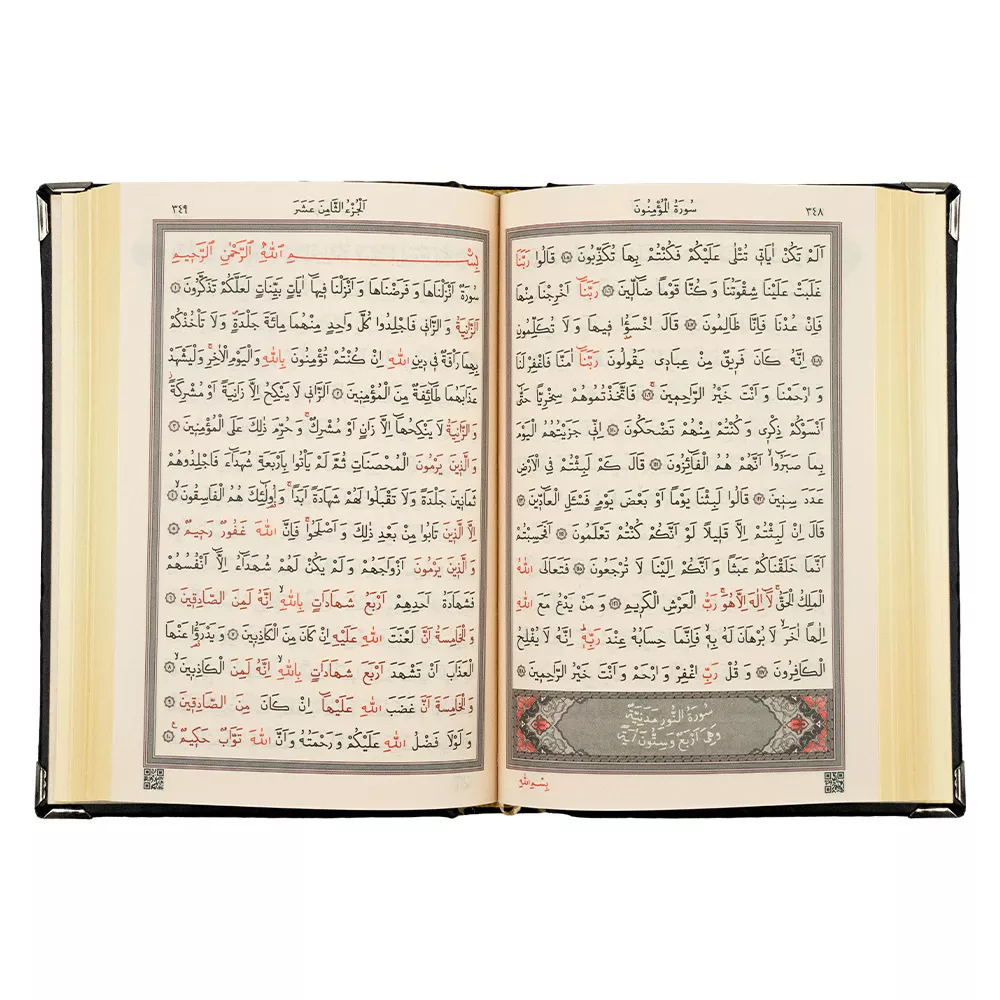 ٣٤٨
سُورَةُ الْمُؤْمِنُونَ
اَلَمْ تَكُنْ اٰيَاتٖي تُتْلٰى عَلَيْكُمْ فَكُنْتُمْ بِهَا تُكَذِّبُونَ ﴿١٠٥﴾ قَالُوا رَبَّنَا
غَلَبَتْ عَلَيْنَا شِقْوَتُنَا وَكُنَّا قَوْمًا ضَٓالّٖينَ ﴿١٠٦﴾ رَبَّنَٓا اَخْرِجْنَا مِنْهَا
فَاِنْ عُدْنَا فَاِنَّا ظَالِمُونَ ﴿١٠٧﴾ قَالَ اخْسَؤُ۫ا فٖيهَا وَ لَا تُكَلِّمُونِ
﴿١٠٨﴾ اِنَّهُ كَانَ فَرٖيقٌ مِنْ عِبَادٖي يَقُولُونَ رَبَّنَٓا اٰمَنَّا فَاغْفِرْ لَنَا
وَ ارْحَمْنَا وَ اَنْتَ خَيْرُ الرَّاحِمٖينَ ﴿١٠٩﴾ فَاتَّخَذْتُمُوهُمْ سِخْرِيًّا حَتّٰٓى
اَنْسَوْكُمْ ذِكْرٖي وَ كُنْتُمْ مِنْهُمْ تَضْحَكُونَ ﴿١١٠﴾ اِنّٖي جَزَيْتُهُمُ الْيَوْمَ
بِمَا صَبَرُٓوا اَنَّهُمْ هُمُ الْفَٓائِزُونَ ﴿١١١﴾ قَالَ كَمْ لَبِثْتُمْ فِي الْاَرْضِ
عَدَدَ سِنٖينَ ﴿١١٢﴾ قَالُوا لَبِثْنَا يَوْمًا اَوْ بَعْضَ يَوْمٍ فَسْـَٔلِ الْعَٓادّٖينَ ﴿١١٣﴾
قَالَ اِنْ لَبِثْتُمْ اِلَّا قَلٖيلًا لَوْ اَنَّكُمْ كُنْتُمْ تَعْلَمُونَ ﴿١١٤﴾ اَفَحَسِبْتُمْ
اَنَّمَا خَلَقْنَاكُمْ عَبَثًا وَ اَنَّكُمْ اِلَيْنَا لَا تُرْجَعُونَ ﴿١١٥﴾ فَتَعَالَى اللّٰهُ
الْمَلِكُ الْحَقُّ لَٓا اِلٰهَ اِلَّا هُوَ رَبُّ الْعَرْشِ الْكَرٖيمِ ﴿١١٦﴾ وَ مَنْ يَدْعُ مَعَ اللّٰهِ
اِلٰهًا اٰخَرَ لَا بُرْهَانَ لَهُ بِهٖ فَاِنَّمَا حِسَابُهُ عِنْدَ رَبِّهٖ اِنَّهُ لَا يُفْلِحُ
الْكَافِرُونَ ﴿١١٧﴾ وَ قُلْ رَبِّ اغْفِرْ وَ ارْحَمْ وَ اَنْتَ خَيْرُ الرَّاحِمٖينَ ﴿١١٨﴾
سُورَةُ النُّورِ مَدَنِيَّةٌ
وَهِيَ اَرْبَعٌ وَسِتُّونَ اٰيَةً
بِسْمِ اللّٰهِ
اَلْجُزْءُ الثَّامِنَ عَشَرَ
٣٤٩
بِسْمِ اللّٰهِ الرَّحْمٰنِ الرَّحٖيمِ
سُورَةٌ اَنْزَلْنَاهَا وَ فَرَضْنَاهَا وَ اَنْزَلْنَا فٖيهَٓا اٰيَاتٍ بَيِّنَاتٍ لَعَلَّكُمْ تَذَكَّرُونَ ﴿١﴾
اَلزَّانِيَةُ وَ الزَّانٖي فَاجْلِدُوا كُلَّ وَاحِدٍ مِنْهُمَا مِائَةَ جَلْدَةٍ وَ لَا تَأْخُذْكُمْ
بِهِمَا رَأْفَةٌ فٖي دٖينِ اللّٰهِ اِنْ كُنْتُمْ تُؤْمِنُونَ بِاللّٰهِ وَالْيَوْمِ الْاٰخِرِ وَلْيَشْهَدْ
عَذَابَهُمَا طَٓائِفَةٌ مِنَ الْمُؤْمِنٖينَ ﴿٢﴾ اَلزَّانٖي لَا يَنْكِحُ اِلَّا زَانِيَةً اَوْ مُشْرِكَةً
وَ الزَّانِيَةُ لَا يَنْكِحُهَٓا اِلَّا زَانٍ اَوْ مُشْرِكٌ وَ حُرِّمَ ذٰلِكَ عَلَى الْمُؤْمِنٖينَ ﴿٣﴾
وَ الَّذٖينَ يَرْمُونَ الْمُحْصَنَاتِ ثُمَّ لَمْ يَأْتُوا بِاَرْبَعَةِ شُهَدَٓاءَ فَاجْلِدُوهُمْ
ثَمَانٖينَ جَلْدَةً وَلَا تَقْبَلُوا لَهُمْ شَهَادَةً اَبَدًا وَ اُو۬لٰٓئِكَ هُمُ الْفَاسِقُونَ ﴿٤﴾
اِلَّا الَّذٖينَ تَابُوا مِنْ بَعْدِ ذٰلِكَ وَ اَصْلَحُوا فَاِنَّ اللّٰهَ غَفُورٌ رَحٖيمٌ ﴿٥﴾
وَ الَّذٖينَ يَرْمُونَ اَزْوَاجَهُمْ وَلَمْ يَكُنْ لَهُمْ شُهَدَٓاءُ اِلَّٓا اَنْفُسُهُمْ
فَشَهَادَةُ اَحَدِهِمْ اَرْبَعُ شَهَادَاتٍ بِاللّٰهِ اِنَّهُ لَمِنَ الصَّادِقٖينَ ﴿٦﴾
وَ الْخَامِسَةُ اَنَّ لَعْنَتَ اللّٰهِ عَلَيْهِ اِنْ كَانَ مِنَ الْكَاذِبٖينَ ﴿٧﴾ وَ يَدْرَؤُ۬ا عَنْهَا
الْعَذَابَ اَنْ تَشْهَدَ اَرْبَعَ شَهَادَاتٍ بِاللّٰهِ اِنَّهُ لَمِنَ الْكَاذِبٖينَ ﴿٨﴾
وَ الْخَامِسَةَ اَنَّ غَضَبَ اللّٰهِ عَلَيْهَٓا اِنْ كَانَ مِنَ الصَّادِقٖينَ ﴿٩﴾
وَ لَوْلَا فَضْلُ اللّٰهِ عَلَيْكُمْ وَ رَحْمَتُهُ وَ اَنَّ اللّٰهَ تَوَّابٌ حَكٖيمٌ ﴿١٠﴾